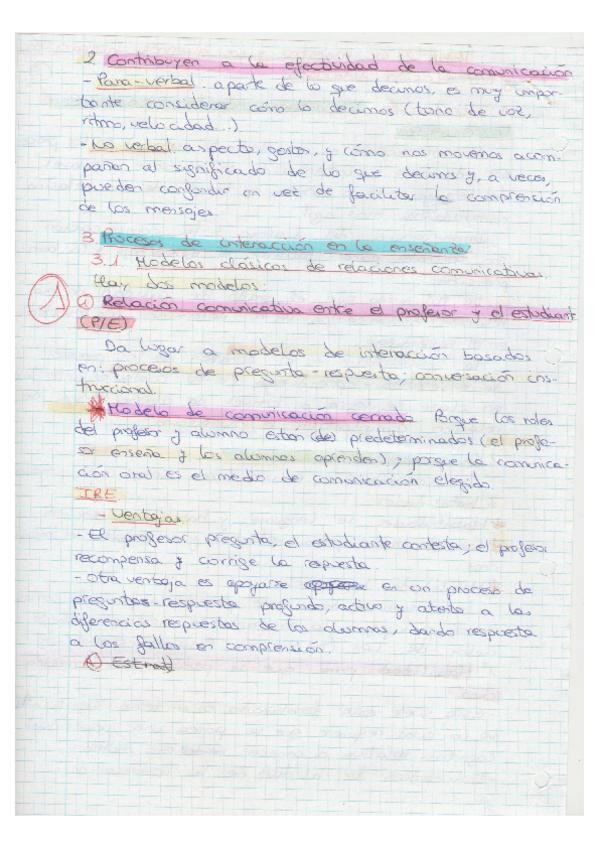 2. Contribuyen a la efectividad de la comunicación
- Para-verbal. aparte de lo que decimos, es muy impor-
tante considerar cómo lo decimos (tono de voz,
ritmo, velocidad...)
- No verbal: aspecto, gestos, y cómo nos movemos acom-
pañan al significado de lo que decimos y, a veces,
pueden confundir en vez de facilitar la comprensión
de los mensajes.
3. Procesos de interacción en la enseñanza
3.1 Modelos clásicos de relaciones comunicativas.
Hay dos modelos:
A
① Relación comunicativa entre el profesor y el estudiante
(P/E)
Da lugar a modelos de interacción basados
en: procesos de pregunta-respuesta; conversación ins-
truccional.
* Modelo de comunicación cerrado Porque los roles
del profesor y alumno están (de) predeterminados (el profe-
sor enseña y los alumnos aprenden); porque la comunica-
ción oral es el medio de comunicación elegido.
IRE
- Ventajas
- El profesor pregunta, el estudiante contesta; el profesor
recompensa y corrige la respuesta.
- Otra ventaja es apoyarse en un proceso de
preguntas-respuesta profundo, activo y atento a las
diferencias respuestas de los alumnos, dando respuesta
a los fallos en comprensión.